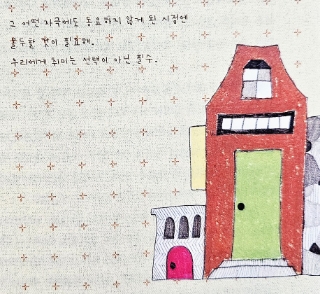 그 어떤 자극에도 동요하지 않게 된 시점에
몰두할 것이 필요해.
우리에게 취미는 선택이 아닌 필수.